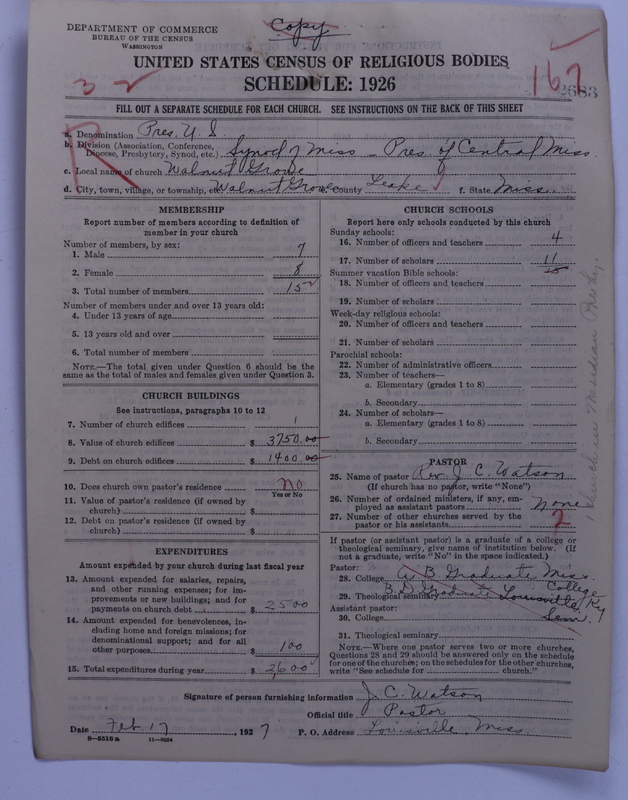 Copy
DEPARTMENT OF COMMERCE
BUREAU OF THE CENSUS
WASHINGTON
UNITED STATES CENSUS OF RELIGIOUS BODIES
SCHEDULE: 1926
3 2
167
2683
FILL OUT A SEPARATE SCHEDULE FOR EACH CHURCH. SEE INSTRUCTIONS ON THE BACK OF THIS SHEET
a. Denomination Pres. U. S.
b. Division (Association, Conference, Diocese, Presbytery, Synod, etc.) Synod of Miss - Pres. of Central Miss.
c. Local name of church Walnut Grove
d. City, town, village, or township, etc. Walnut Grove e. County Leake f. State Miss.
MEMBERSHIP
Report number of members according to definition of
member in your church
Number of members, by sex:
1. Male 7
2. Female 8
3. Total number of members 15
Number of members under and over 13 years old:
4. Under 13 years of age
5. 13 years old and over
6. Total number of members
NOTE.—The total given under Question 6 should be the
same as the total of males and females given under Question 3.
CHURCH BUILDINGS
See instructions, paragraphs 10 to 12
7. Number of church edifices 1
8. Value of church edifices $ 3750.00
9. Debt on church edifices $ 1400.00
10. Does church own pastor's residence? no
Yes or No
11. Value of pastor's residence (if owned by
church) $
12. Debt on pastor's residence (if owned by
church) $
EXPENDITURES
Amount expended by your church during last fiscal year
13. Amount expended for salaries, repairs,
and other running expenses; for im-
provements or new buildings; and for
payments on church debt $ 2500
14. Amount expended for benevolences, in-
cluding home and foreign missions; for
denominational support; and for all
other purposes $ 100
15. Total expenditures during year $ 2,600
CHURCH SCHOOLS
Report here only schools conducted by this church
Sunday schools:
16. Number of officers and teachers 4
17. Number of scholars 11
15
Summer vacation Bible schools:
18. Number of officers and teachers
19. Number of scholars
Week-day religious schools:
20. Number of officers and teachers
21. Number of scholars
Parochial schools:
22. Number of administrative officers
23. Number of teachers—
a. Elementary (grades 1 to 8)
b. Secondary
24. Number of scholars—
a. Elementary (grades 1 to 8)
b. Secondary
PASTOR
25. Name of pastor Rev. J. C. Watson
(If church has no pastor, write "None")
26. Number of ordained ministers, if any, em-
ployed as assistant pastors None
27. Number of other churches served by the
pastor or his assistants 2
If pastor (or assistant pastor) is a graduate of a college or
theological seminary, give name of institution below. (If
not a graduate, write "No" in the space indicated.)
Pastor:
28. College A B Graduate Miss. College
29. Theological seminary B D Graduate Louisville, Ky Sem.
Assistant pastor:
30. College
31. Theological seminary
NOTE.—Where one pastor serves two or more churches,
Questions 28 and 29 should be answered only on the schedule
for one of the churches; on the schedules for the other churches,
write "See schedule for church."
Signature of person furnishing information J. C. Watson
Official title Pastor
Date Feb. 17, 1927 P. O. Address Louisville, Miss.
8-5518 a 11-9024